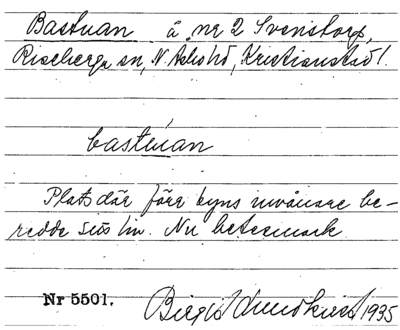 Bastuan å nr 2 Svenstorp,
Riseberga sn, N. Åsbo hd, Kristianstad l.
bastúan
Plats där förr byns invånare be-
redde sitt lin. Nu betesmark.
Nr 5501.
Birgit Lundkvist 1935